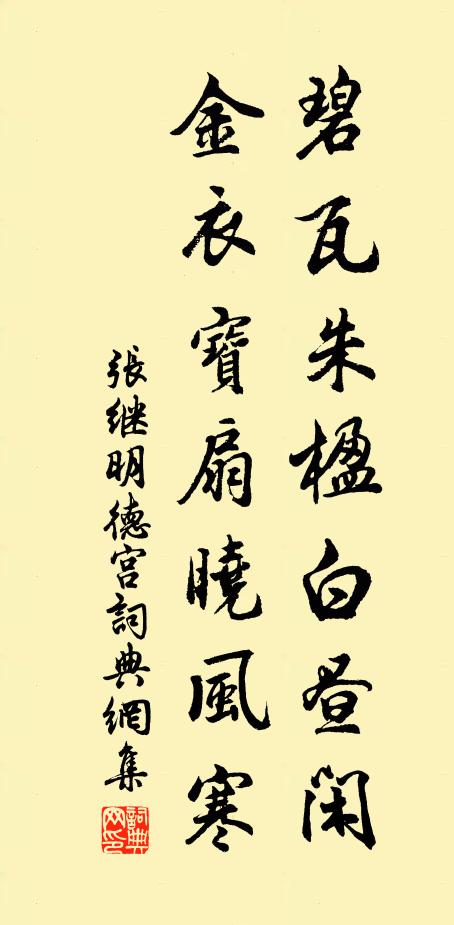 碧瓦朱楹白昼闲
金衣寶扇曉風寒
張继明德宫詞典網集
詞典网印